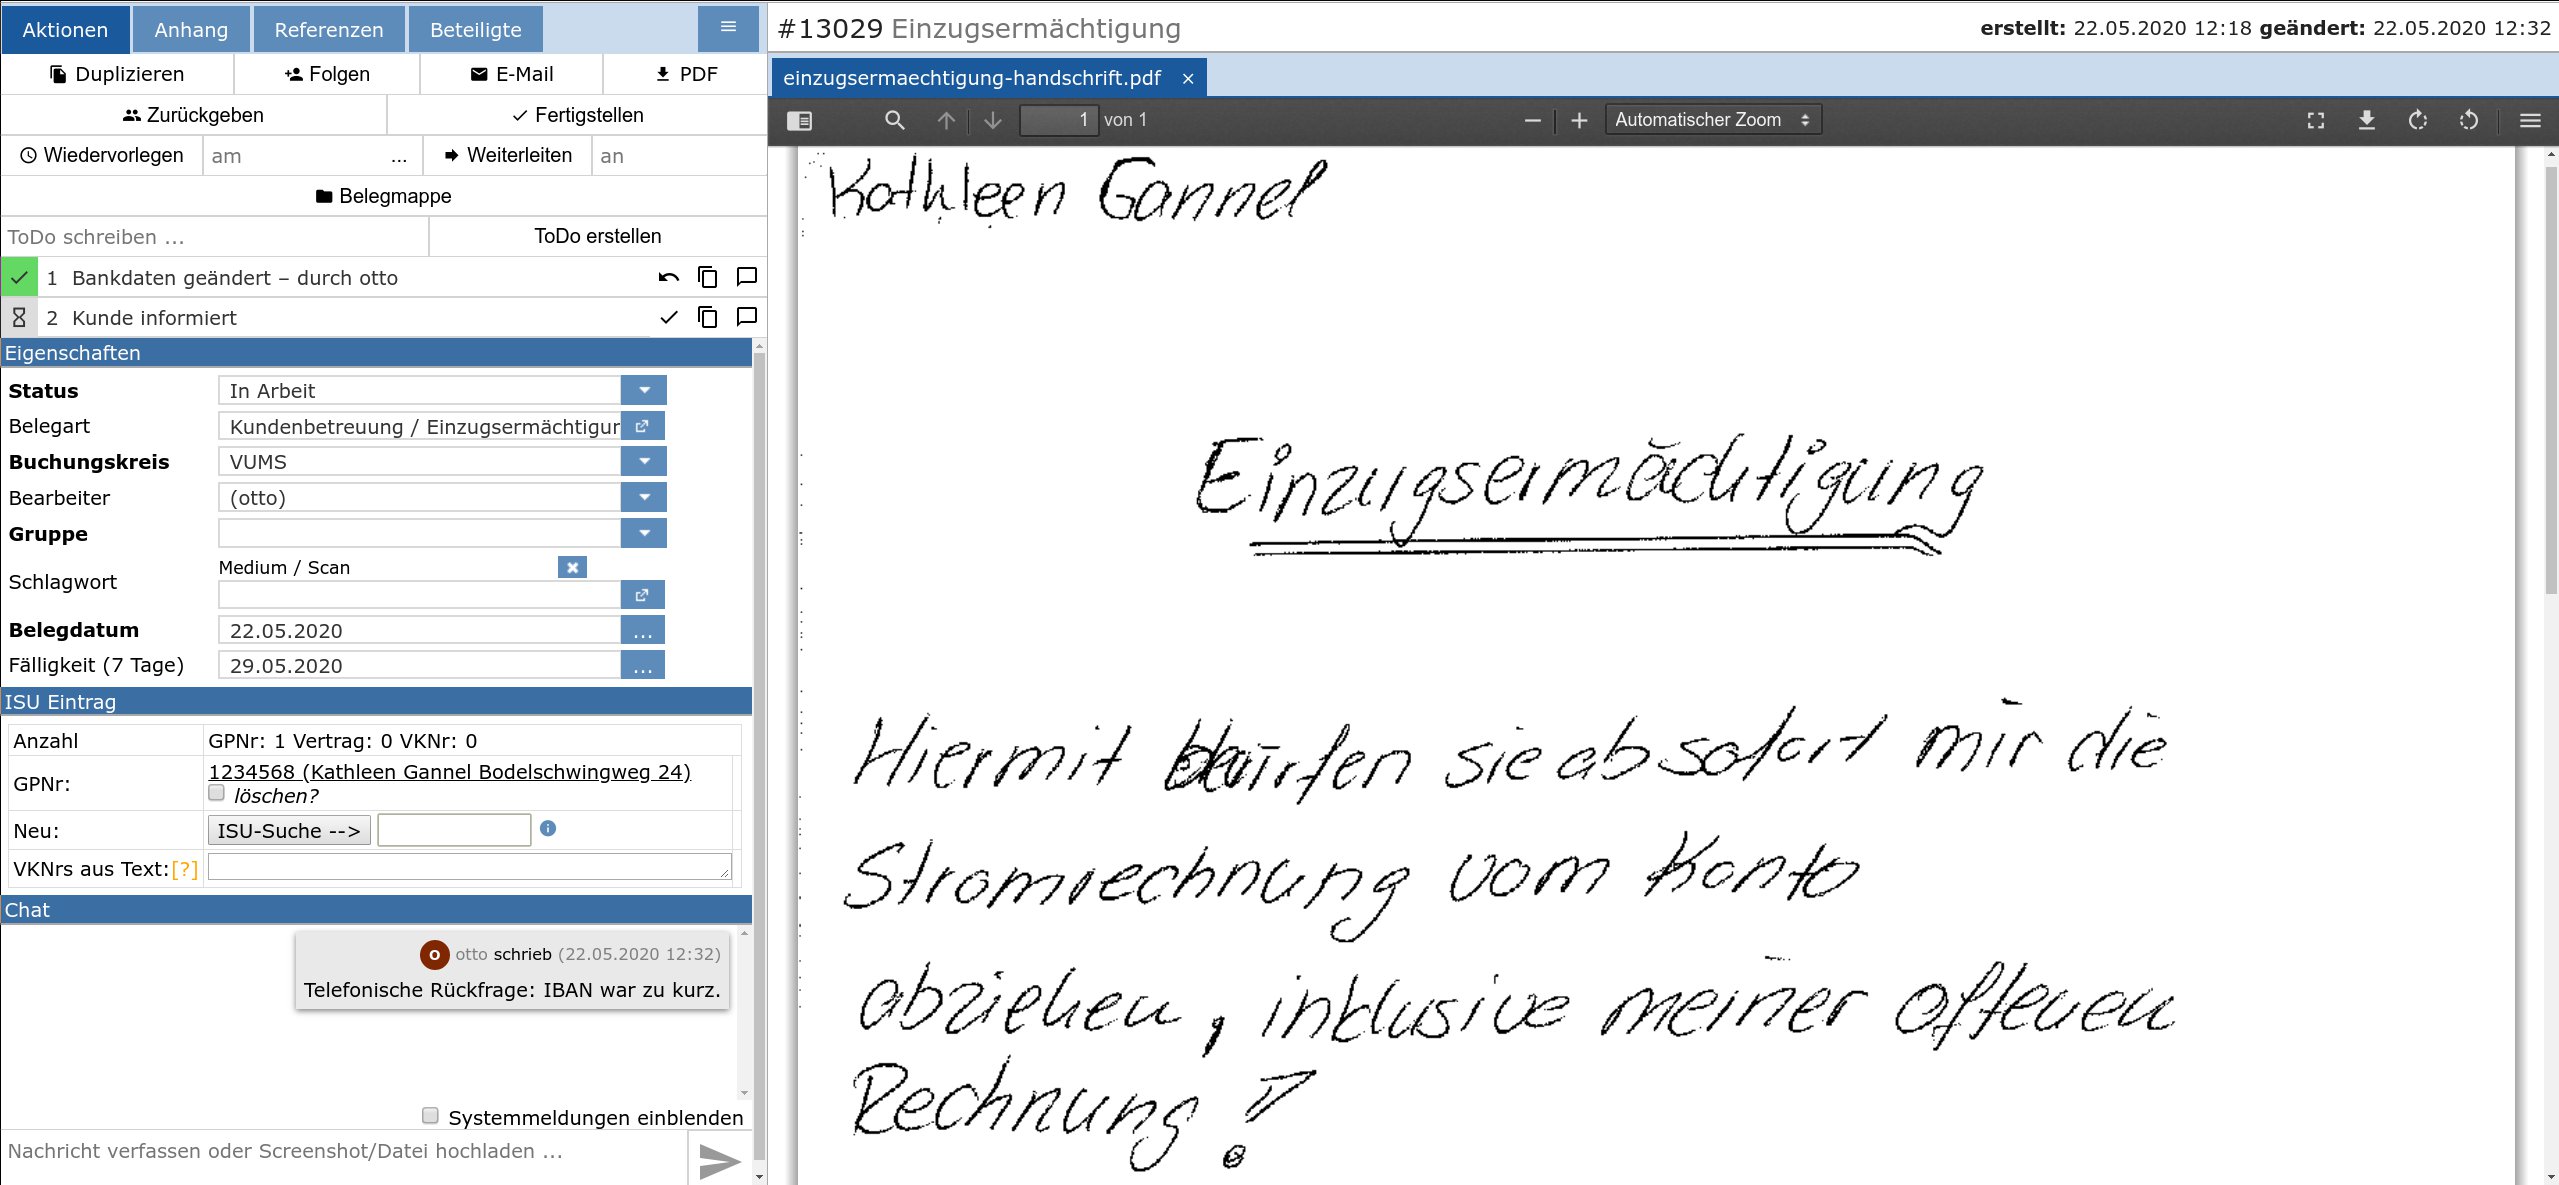 Aktionen Anhang Referenzen Beteiligte
Duplizieren Folgen E-Mail PDF
Zurückgeben Fertigstellen
Wiedervorlegen am ... Weiterleiten an
Belegmappe
ToDo schreiben ... ToDo erstellen
1 Bankdaten geändert – durch otto
2 Kunde informiert
Eigenschaften
Status In Arbeit
Belegart Kundenbetreuung / Einzugsermächtigur
Buchungskreis VUMS
Bearbeiter (otto)
Gruppe
Schlagwort Medium / Scan
Belegdatum 22.05.2020 ...
Fälligkeit (7 Tage) 29.05.2020 ...
ISU Eintrag
Anzahl GPNr: 1 Vertrag: 0 VKNr: 0
GPNr: 1234568 (Kathleen Gannel Bodelschwingweg 24)
löschen?
Neu: ISU-Suche -->
VKNrs aus Text:[?]
Chat
o otto schrieb (22.05.2020 12:32)
Telefonische Rückfrage: IBAN war zu kurz.
Systemmeldungen einblenden
Nachricht verfassen oder Screenshot/Datei hochladen ...
#13029 Einzugsermächtigung erstellt: 22.05.2020 12:18 geändert: 22.05.2020 12:32
einzugsermaechtigung-handschrift.pdf ×
1 von 1 Automatischer Zoom
Kathleen Gannel
Einzugsermächtigung
Hiermit dürfen sie ab sofort mir die
Stromrechnung vom Konto
abziehen, inklusive meiner offenen
Rechnung!